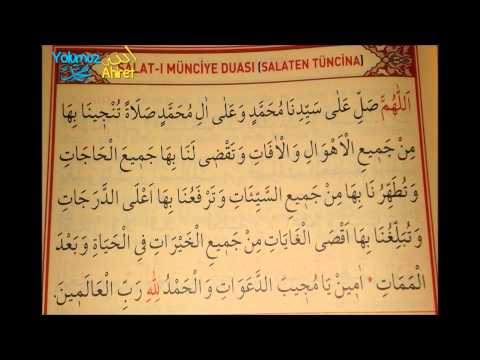 Yolumuz
Ahiret
SALAT-I MÜNCİYE DUASI (SALATEN TÜNCİNA)
اَللّٰهُمَّ صَلِّ عَلٰى سَيِّدِنَا مُحَمَّدٍ وَعَلٰى اٰلِ مُحَمَّدٍ صَلَاةً تُنْجِينَا بِهَا
مِنْ جَمِيعِ الْاَهْوَالِ وَالْاٰفَاتِ وَتَقْضِى لَنَا بِهَا جَمِيعَ الْحَاجَاتِ
وَتُطَهِّرُنَا بِهَا مِنْ جَمِيعِ السَّيِّئَاتِ وَتَرْفَعُنَا بِهَا اَعْلَى الدَّرَجَاتِ
وَتُبَلِّغُنَا بِهَا اَقْصَى الْغَايَاتِ مِنْ جَمِيعِ الْخَيْرَاتِ فِى الْحَيَاةِ وَبَعْدَ
الْمَمَاتِ * اٰمِينَ يَا مُجِيبَ الدَّعَوَاتِ وَالْحَمْدُ لِلّٰهِ رَبِّ الْعَالَمِينَ.